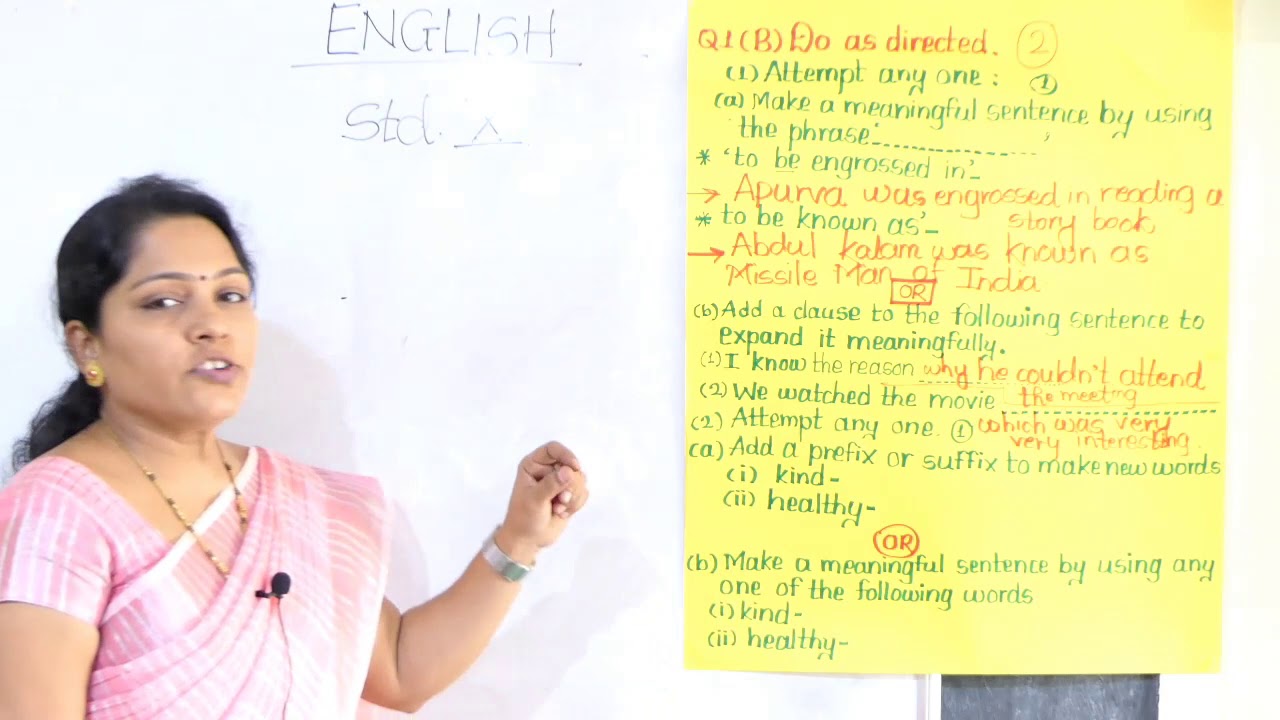 ENGLISH
Std. X
Q1(B) Do as directed. 2
(1) Attempt any one : 1
(a) Make a meaningful sentence by using
the phrase ;
* 'to be engrossed in'-
→ Apurva was engrossed in reading a
story book
* to be known as'-
→ Abdul Kalam was known as
Missile Man of India
OR
(b) Add a clause to the following sentence to
expand it meaningfully.
(1) I know the reason why he couldn't attend
the meeting
(2) We watched the movie
which was very
very interesting.
(2) Attempt any one. 1
(a) Add a prefix or suffix to make new words
(i) kind-
(ii) healthy-
OR
(b) Make a meaningful sentence by using any
one of the following words
(i) kind-
(ii) healthy-